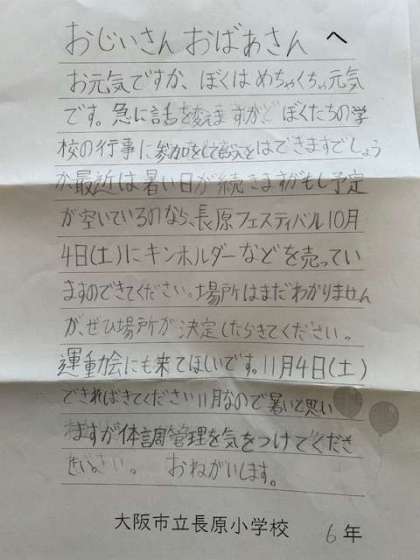 おじいさん おばあさん へ
お元気ですか、ぼくはめちゃくちゃ元気
です。急に話を変えますが、ぼくたちの学
校の行事に参加をしてもらうことはできますでしょう
か、最近は暑い日が続きますがもし予定
が空いているのなら、長原フェスティバル10月
4日(土)にキンホルダーなどを売ってい
ますのできてください。場所はまだわかりません
が、ぜひ場所が決定したらきてください。
運動会にも来てほしいです。11月4日(土)
できればきてください11月なので暑いと思い
ますが体調管理を気をつけてくださ
い。 おねがいします。
大阪市立長原小学校 6年